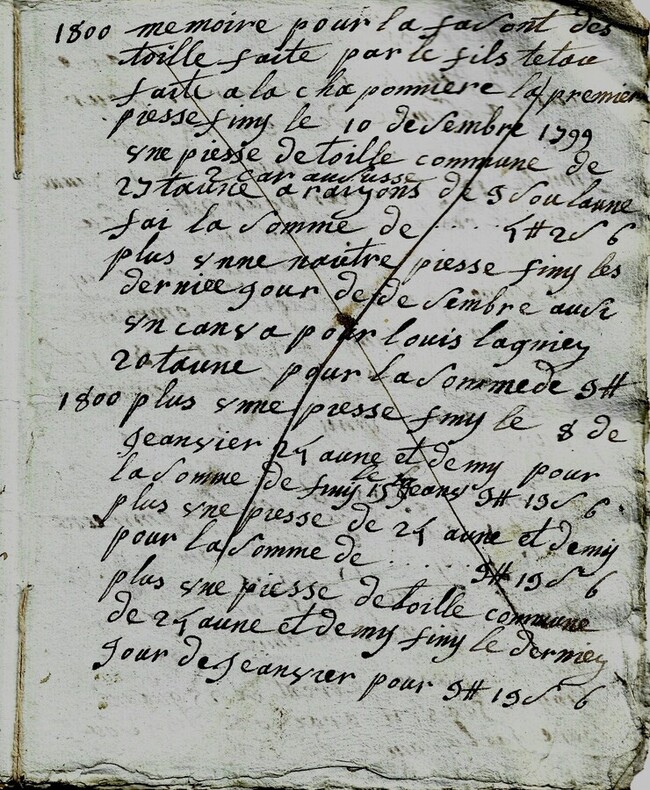 1800 memoire pour la fason des
toille faite par le fils tetau
faite a la chaponniere la premier
piesse finy le 10 desembre 1799
une piesse de toille commune de
2 car au
27 taune a rayons de 5 sou laune
fai la somme de ..... 2 s 6
plus unne nautre piesse finy les
derniee gour de desembre ausi
un canva pour louis lagniey
20 taune pour la somme de 9#
1800 plus unne piesse finy le 8 de
geanvier 25 aune et demy pour
la somme de 9# 19 s 6
finy le 19 geanv
plus une piesse de 25 aune et demy
pour la somme de ...... 9# 19 s 6
plus une piesse de toille commune
de 25 aune et demy finy le derniey
gour de geanvier pour 9# 19 s 6